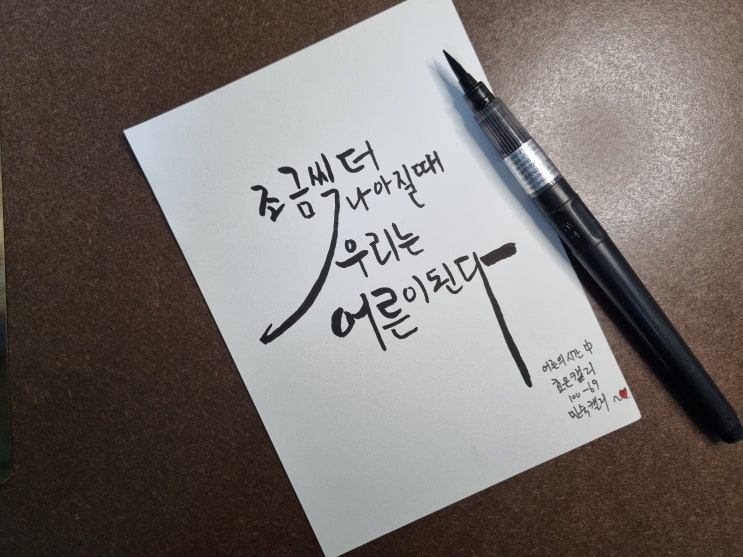 조금씩 더
나아질때
우리는
어른이된다
어른의 시간 中
효은캘리
100-69
민숙캘리